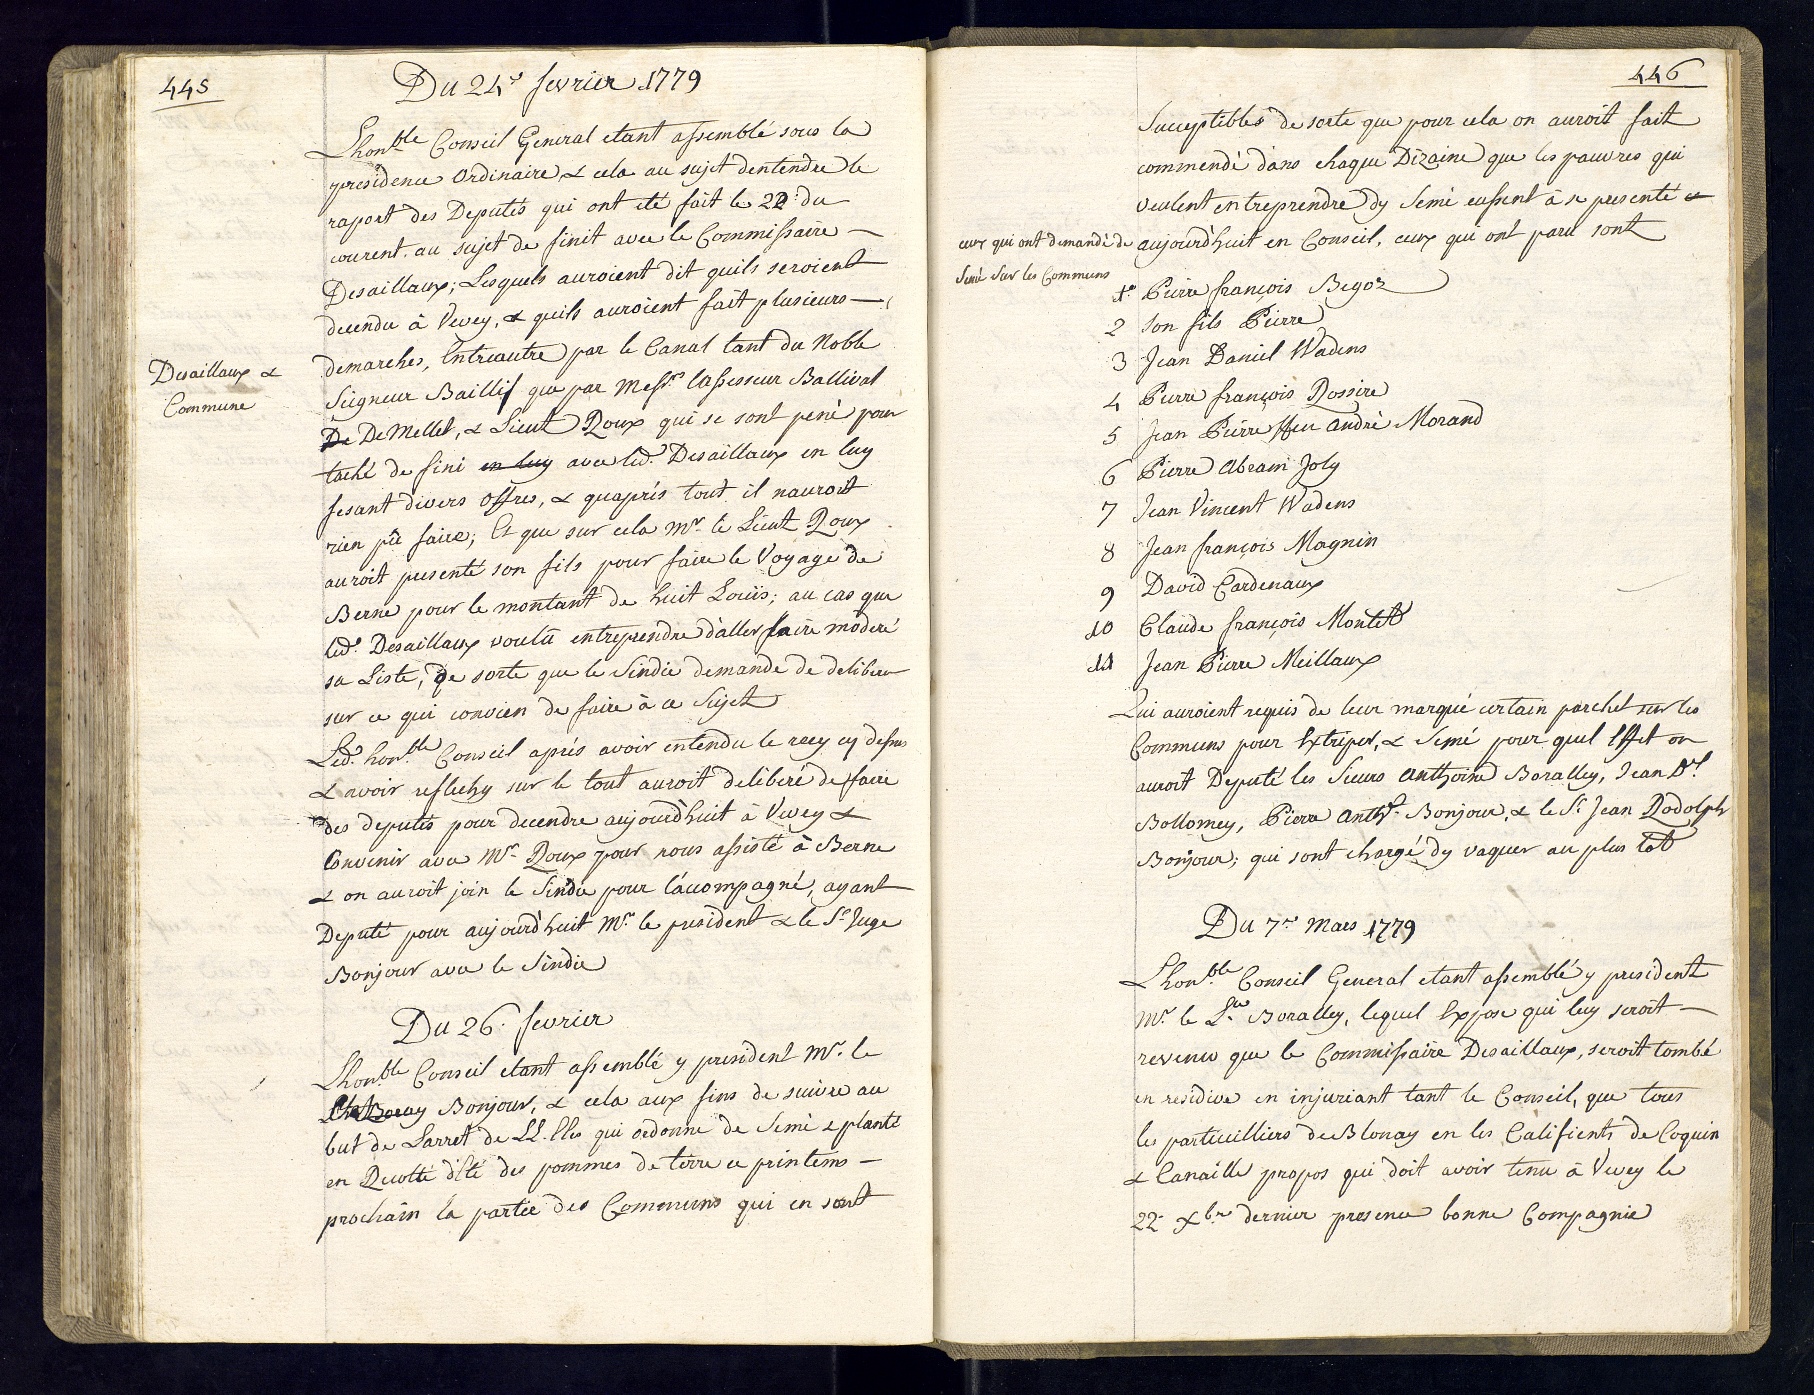 445
Du 24e fevrier 1779
Lhonble Conseil General etant assemblé sous la
presidence Ordinaire & cela au sujet dentendre le
raport des Deputés qui ont eté fait le 22e du
courent. au sujet de finit avec le Commissaire —
Desaillaux; Lesquels auroient dit quils seroient
decendu à Vevey, & quils auroient fait plusieurs —
demarches, Entreautre par le Canal tant du Noble
Desaillaux &
Commune
Seigneur Baillif que par Messrs lassesseur Ballival
De DeMellet, & Lieut Roux qui se sont pené pour
taché de fini en luy avec led. Desaillaux en luy
fesant divers offres, & quaprés tout il nauroit
rien pû faire; Et que sur cela Mr le Lieut Roux
auroit presenté son fils pour faire le Voyage de
Berne pour le montant de huit Louis; au cas que
led. Desaillaux voulu entreprendre d'aller faire moderé
sa Liste; De sorte que le Sindic demande de deliberer
sur ce qui convien de faire à ce Sujet
Led. honble Conseil aprés avoir entendu le recy cy dessus
& avoir reflechy sur le tout auroit deliberé de faire
des deputés pour decendre aujourdhuit à Vevey &
Convenir avec Mr Roux pour nous assisté à Berne
& on auroit join le Sindic pour l'acompagné, ayant
Deputé pour aujourdhuit Mr le president & le Sr Juge
Bonjour avec le Sindic
Du 26. fevrier
Lhonble Conseil etant assemblé y president Mr le
Bonjour, & cela aux fins de suivre au
but de Larret de LL. EEes qui ordonne de Semé & planté
en Recolte d'Eté des pommes de terre ce printems —
prochain la partie des Communs qui en sont
446
Succeptibles de sorte que pour cela on auroit fait
commendé dans chaque Dizaine que les pauvres qui
veulent entreprendre dy Semé eussent à se presenté
ceux qui ont demandé de
Semé sur les Communs
aujourdhuit en Conseil, ceux qui ont paru sont
1e Pierre françois Begoz
2 son fils Pierre
3 Jean Daniel Wadens
4 Pierre françois Rossire
5 Jean Pierre ffeu André Morand
6 Pierre Abram Joly
7 Jean Vincent Wadens
8 Jean françois Magnin
9 David Cardenaux
10 Claude françois Montet
11 Jean Pierre Meillaux
Qui auroient requis de leur marqué certain parchet sur les
Communs pour Extriper, & Semé pour quel Effet on
auroit Deputé les Sieurs Anthoine Boralley, Jean Dl
Bollomey, Pierre Anthe Bonjour, & le Sr Jean Rodolph
Bonjour; qui sont chargé dy vaquer au plus tot
Du 7e Mars 1779
Lhonble Conseil General etant assemblé y president
Mr le Boralley, lequel Expose qui luy seroit —
revenu que le Commissaire Desaillaux, seroit tombé
en residive en injuriant tant le Conseil, que tous
les particuilliers de Blonay en les Califients de Coquin
& Canaille propos qui doit avoir tenu à Vevey le
22e Xbre dernier presence bonne Compagnie